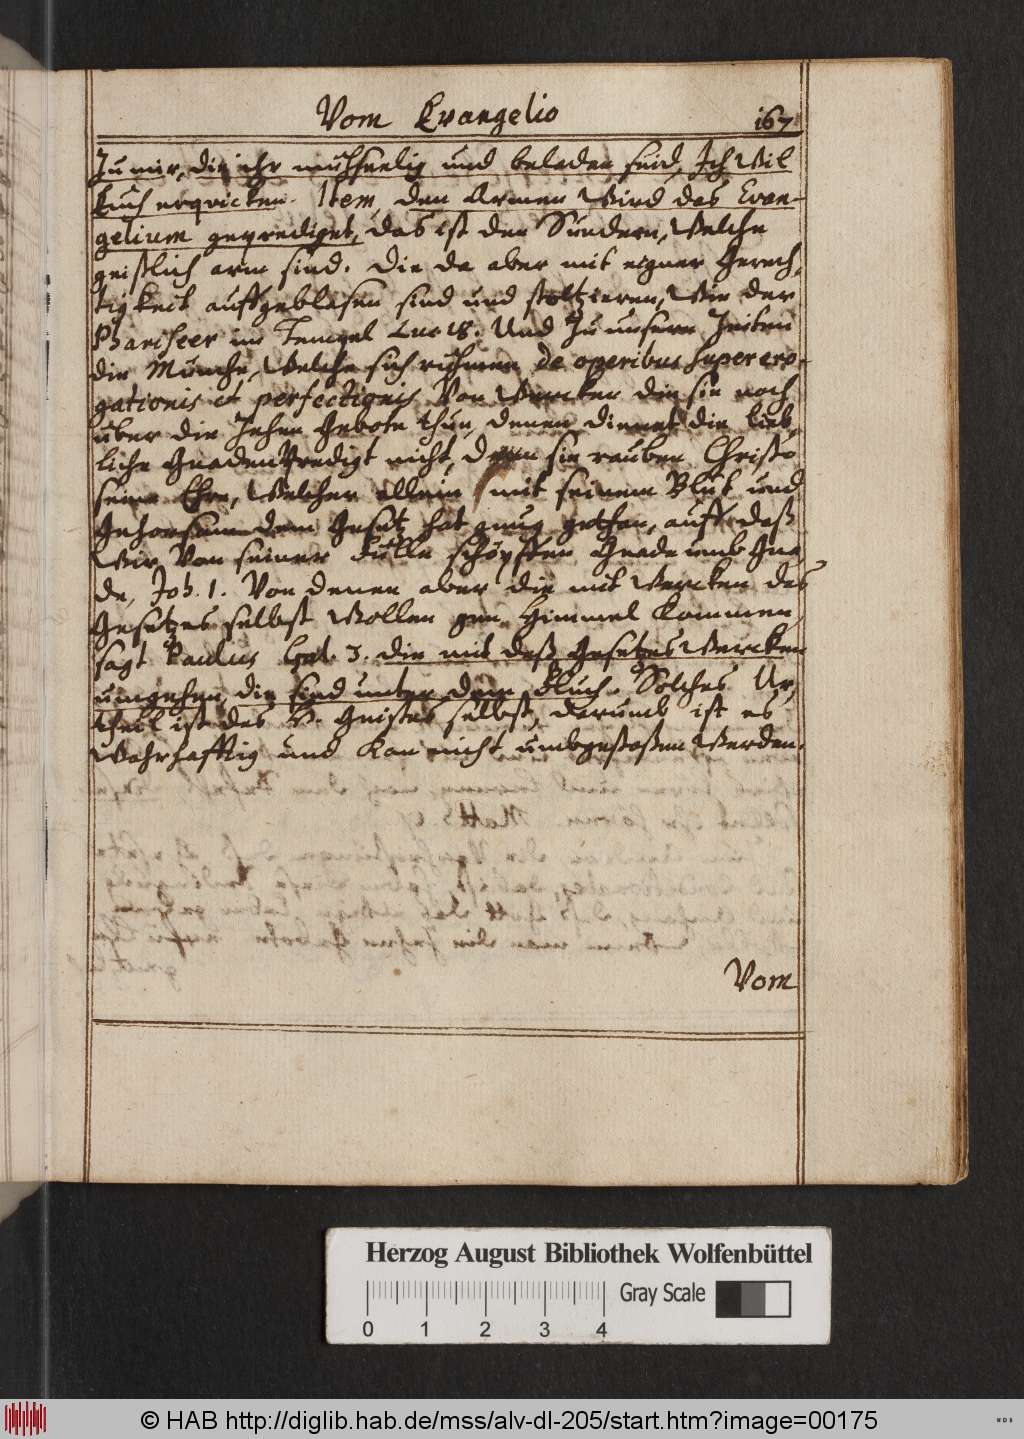 Vom Evangelio 167
Zu mir, die ihr muhseelig und beladen seid, Ich Wil
Euch erqvicken. Item, den Armen Wird das Evan-
gelium geprediget, das ist den Sündern, Welche
geistlich arm sind. Die da aber mit eigner Gerech,
tigkeit auffgeblasen sind und stoltzieren, Wie der
Phariseer im Tempel Luc 18. Und Zu unsern Zeiten
die Münche, Welche sich rühmen de operibus supererο-
gationis et perfectionis Von Wercken die sie noch
über die Zehen Gebote thun, denen dienet die lieb,
liche GnadenPredigt nicht, denn sie rauben Christo
seine Ehre, Welcher allein mit seinem Blut und
Gehorsam dem Gesetz hat gnug gethan, auff daß
Wir Von seiner Fülle schöpffen Gnade umb Gna
de, Joh. 1. Von denen aber die mit Wercken des
Gesetzes selbst Wollen gen Himmel Kommen,
sagt Paulus Gal. 3. die mit deß Gesetzes Wercken
umgehen, die sind unter dem Fluch. Solches Ur,
theil ist des H. Geistes selbst, darumb ist es
Wahrhafftig und Kan nicht umbgestoßen Werden.
Vom
Herzog August Bibliothek Wolfenbüttel
Gray Scale
0 1 2 3 4
© HAB http://diglib.hab.de/mss/alv-dl-205/start.htm?image=00175